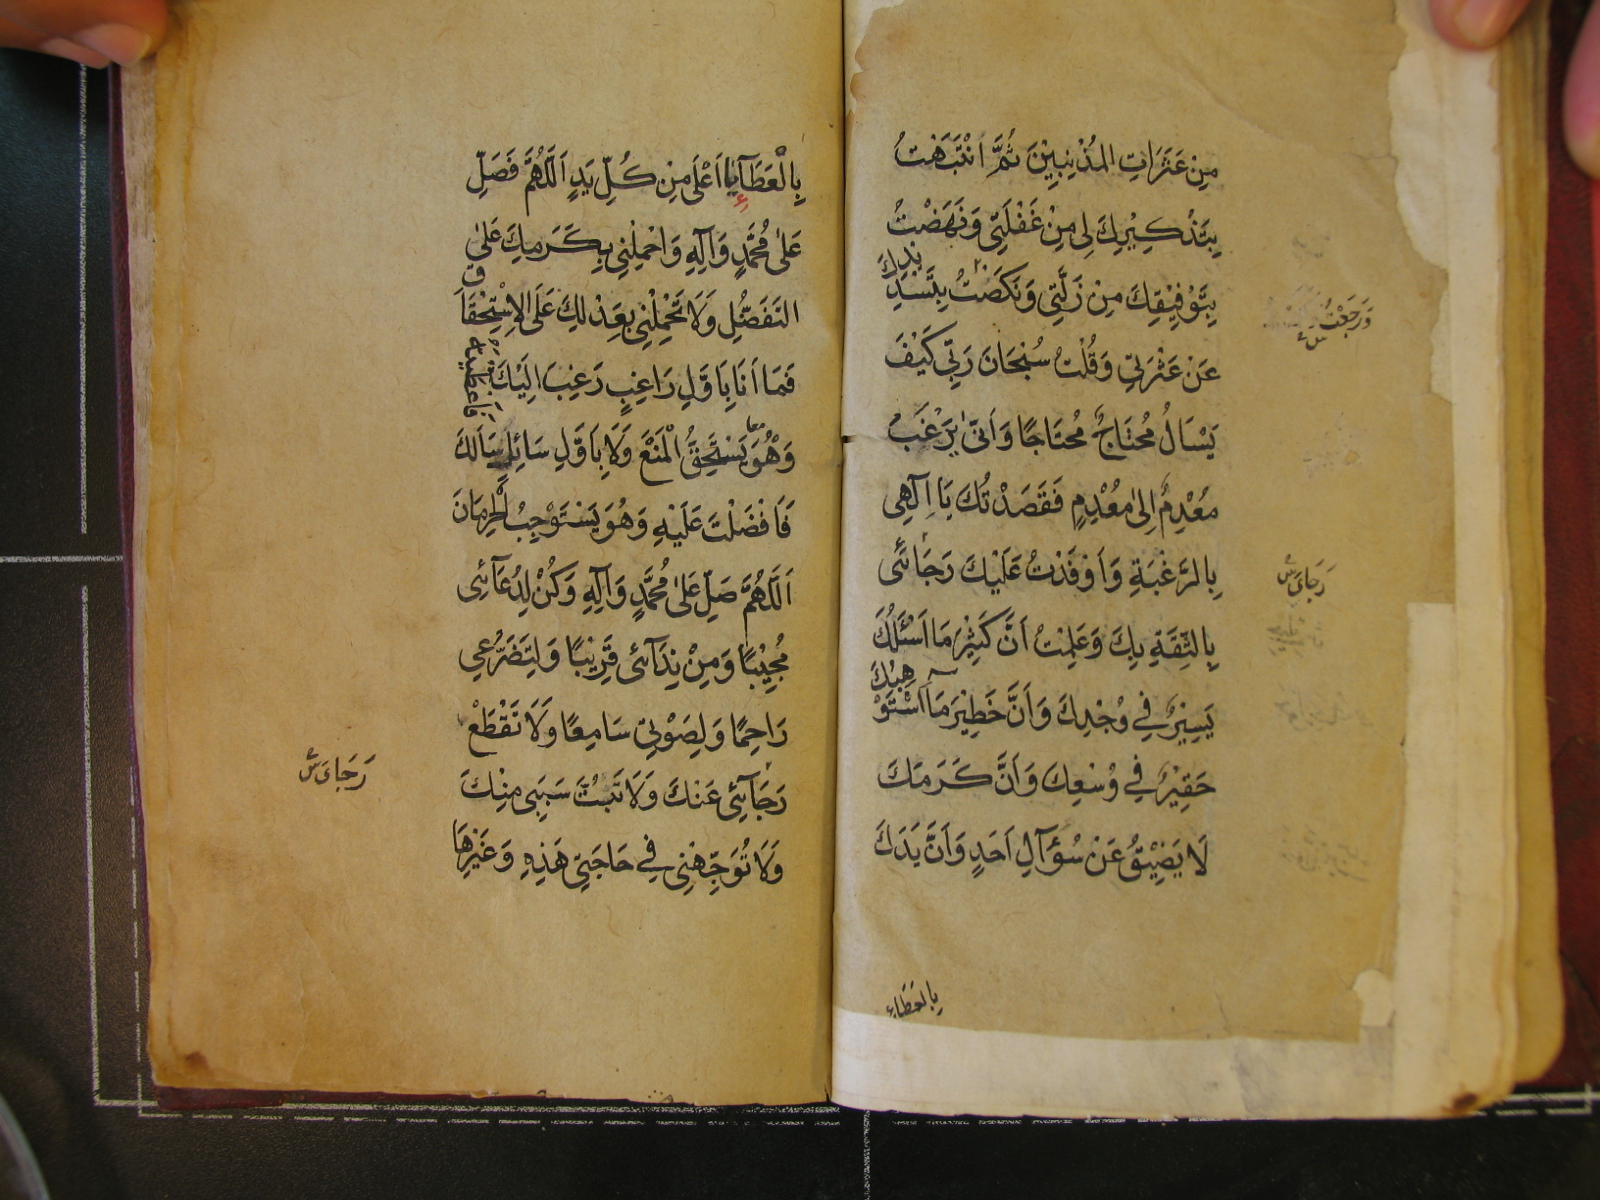 مِنْ عَثَرَاتِ الْمُذْنِبِيْنَ ثُمَّ انْتَبَهْتُ
بِتَذْكِيْرِكَ لِى مِنْ غَفْلَتِىْ وَنَهَضْتُ
بِتَوْفِيْقِكَ مِنْ زَلَّتِى وَنَكَصْتُ بِتَسْدِيْدِكَ
وَرَجَعْتُ
عَنْ عَثْرَتِى وَقُلْتُ سُبْحَانَ رَبِّى كَيْفَ
يَسْاَلُ مُحْتَاجٌ مُحْتَاجًا وَاَنّٰى يَرْغَبُ
مُعْدِمٌ اِلٰى مُعْدِمٍ فَقَصَدْتُكَ يَا اِلٰهِى
بِالرَّغْبَةِ وَاَوْفَدْتُ عَلَيْكَ رَجَائِى
رَجَاىَ
بِالثِّقَةِ بِكَ وَعَلِمْتُ اَنَّ كَثِيْرَ مَا اَسْئَلُكَ
يَسِيْرٌ فِى وُجْدِكَ وَاَنَّ خَطِيْرَ مَا اَسْتَوْهِبُكَ
حَقِيْرٌ فِى وُسْعِكَ وَاَنَّ كَرَمَكَ
لَا يَضِيْقُ عَنْ سُؤَالِ اَحَدٍ وَاَنَّ يَدَكَ
بالعطاء
بِالْعَطَآيَا اَعْلٰى مِنْ كُلِّ يَدٍ اَللّٰهُمَّ فَصَلِّ
عَلٰى مُحَمَّدٍ وَآلِهٖ وَاحْمِلْنِى بِكَرَمِكَ عَلٰى
التَّفَضُّلِ وَلَا تَحْمِلْنِى بِعَدْلِكَ عَلَى الْاِسْتِحْقَاقِ
فَمَا اَنَا بِاَوَّلِ رَاغِبٍ رَغِبَ اِلَيْكَ فَاَعْطَيْتَهُ
وَهُوَ يَسْتَحِقُّ الْمَنْعَ وَلَا بِاَوَّلِ سَائِلٍ سَاَلَكَ
فَاَفْضَلْتَ عَلَيْهِ وَهُوَ يَسْتَوْجِبُ الْحِرْمَانَ
اَللّٰهُمَّ صَلِّ عَلٰى مُحَمَّدٍ وَآلِهٖ وَكُنْ لِدُعَآئِى
مُجِيْبًا وَمِنْ نِدَآئِى قَرِيْبًا وَلِتَضَرُّعِى
رَاحِمًا وَلِصَوْتِى سَامِعًا وَلَا تَقْطَعْ
رَجَآئِى عَنْكَ وَلَا تَبُتَّ سَبَبِى مِنْكَ
رَجَاىَ
وَلَا تُوَجِّهْنِى فِى حَاجَتِى هٰذِهٖ وَغَيْرِهَا